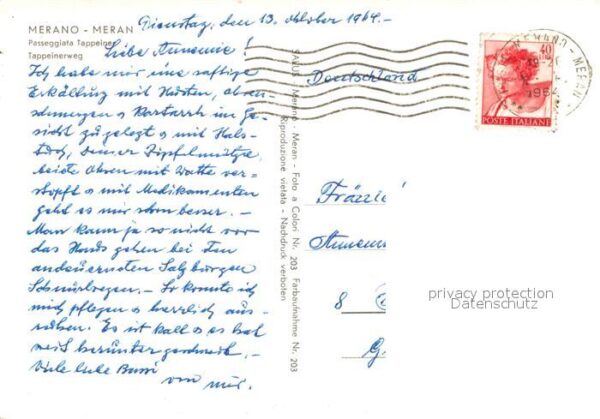 Dienstag, den 13. Oktober 1964.-
MERANO - MERAN
Passeggiata Tappeiner
Tappeinerweg
Liebe Annemie!
Ich habe mir eine saftige
Erkältung mit Husten, Ohren-
schmerzen & Katarrh im Ge-
sicht zugelegt & mit Hals-
tuch, Deiner Zipfelmütze
beide Ohren mit Watte ver-
stopft & mit Medikamenten
geht es mir schon besser. -
Man kann ja so nicht vor
das Haus gehen bei den
andauernden Salzburger
Schnürlregen. - So konnte ich
mich pflegen & herrlich aus-
ruhen. Es ist kalt & es hat
weit herunter geschneit. -
Viele liebe Bussi
von mir.
SALUS - Merano - Meran - Foto a Colori Nr. 203 Farbaufnahme Nr. 203
Riproduzione vietata - Nachdruck verboten
Deutschland
MERANO - MERAN
1964
40
POSTE ITALIANE
Annem
8
G
privacy protection
Datenschutz